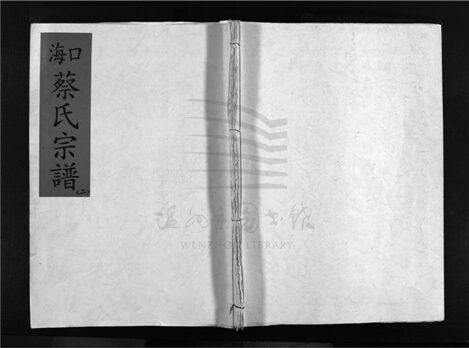 海口
蔡氏宗譜
(二)
温州市图书馆
WENZHOU LIBRARY